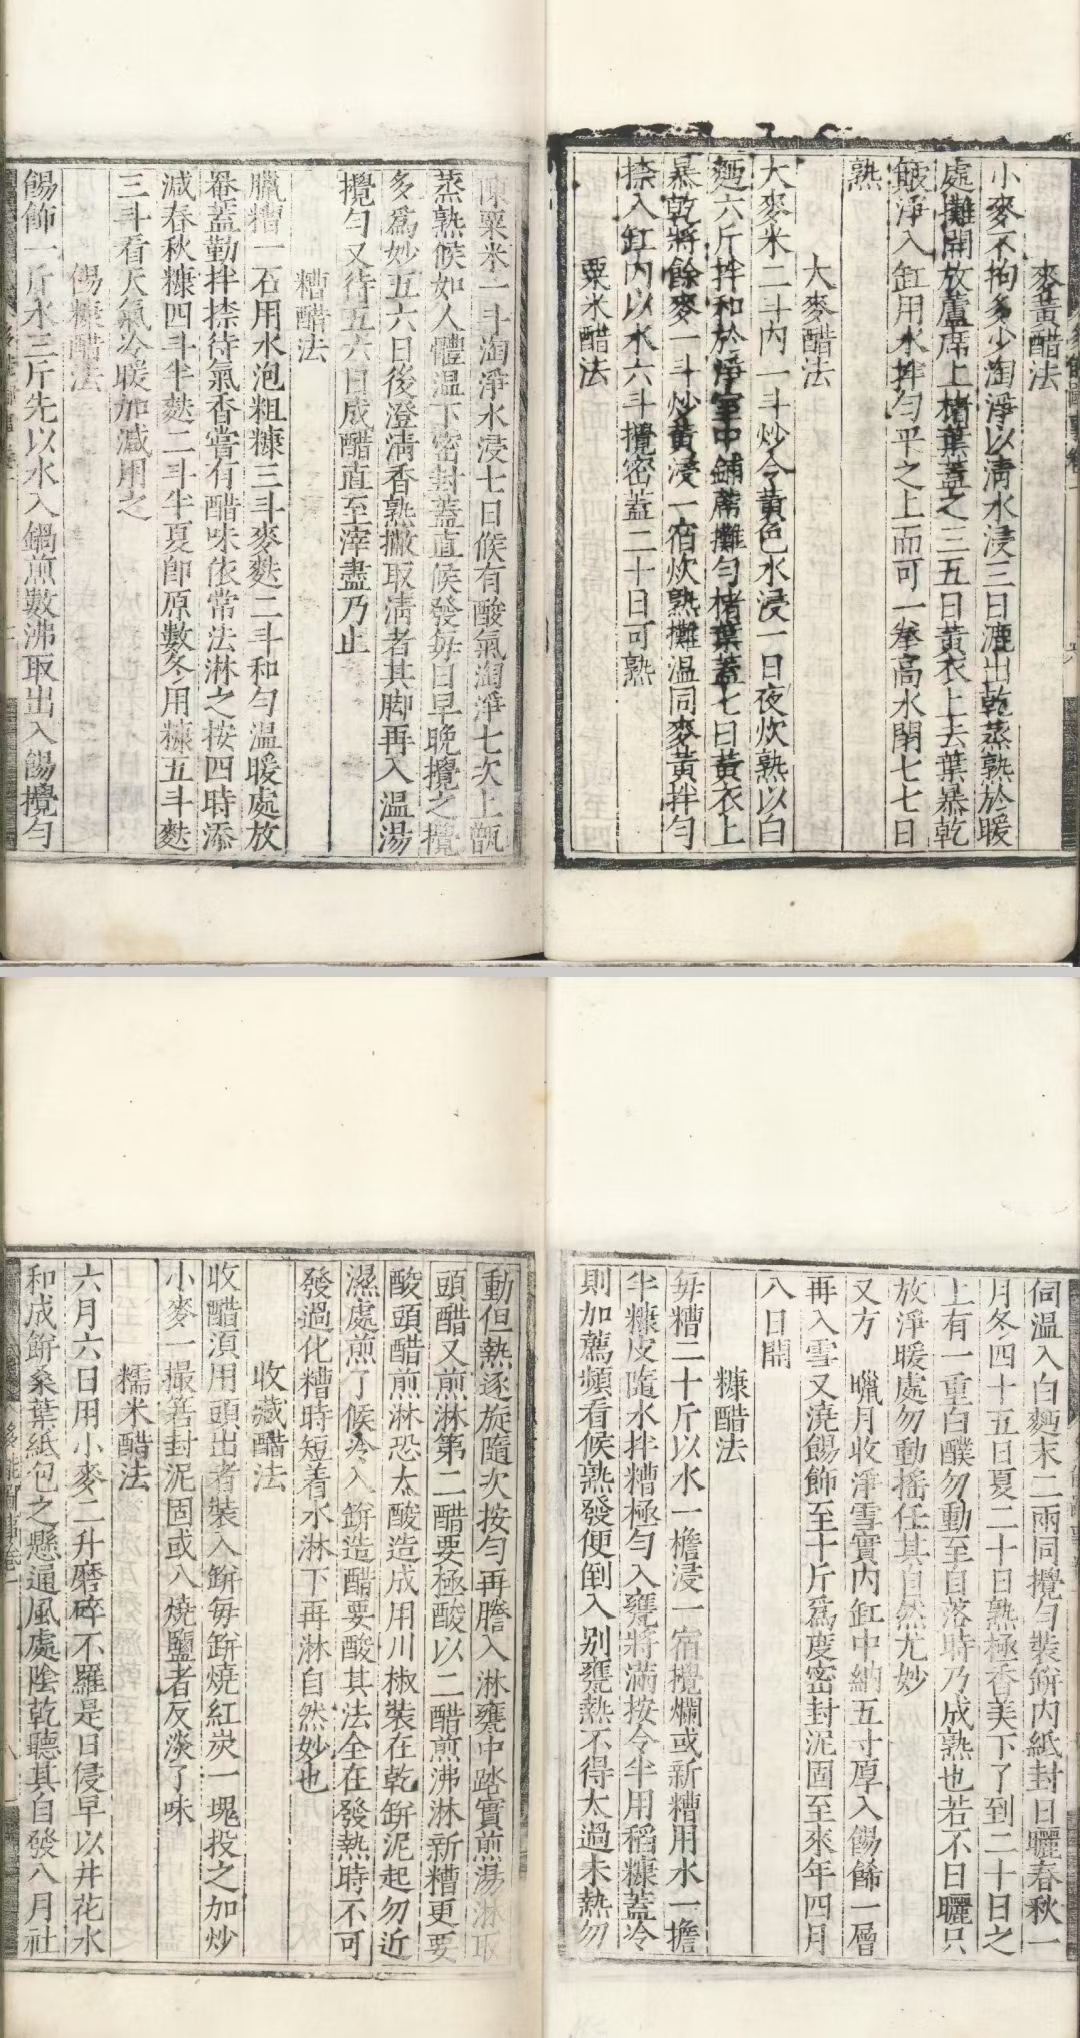 麥黃醋法
小麥不拘多少淘淨以清水浸三日漉出乾蒸熟於暖
處攤開放蘆席上楮葉蓋之三五日黃衣上去葉暴乾
簸淨入缸用水拌勻平之上而可一拳高水閉七七日
熟
大麥醋法
大麥米二斗內一斗炒令黃色水浸一日夜炊熟以白
麵六斤拌和於淨室中鋪蓆攤勻楮葉蓋七日黃衣上
暴乾將餘麥一斗炒黃浸一宿炊熟攤温同麥黃拌勻
捺入缸內以水六斗攪密蓋二十日可熟
粟米醋法
陳粟米一斗淘淨水浸七日候有酸氣淘淨七次上甑
蒸熟候如人體温下密封蓋直候發每日早晚攪之攪
多爲妙五六日後澄清香熟撇取清者其脚再入温湯
攪勻又待五六日成醋直至滓盡乃止
糟醋法
臘糟一石用水泡粗糠三斗麥麩二斗和勻温暖處放
罨蓋勤拌捺待氣香嘗有醋味依常法淋之按四時添
減春秋糠四斗半麩二斗半夏卽原數冬用糠五斗麩
三斗看天氣冷暖加減用之
餳糠醋法
餳餙一斤水三斤先以水入鍋煎數沸取出入餳攪勻
伺温入白麵末二兩同攪勻裝缾内紙封日曬春秋一
月冬四十五日夏二十日熟極香美下了到二十日之
上有一重白醭勿動至自落時乃成熟也若不日曬只
放淨暖處勿動搖任其自然尤妙
又方 臘月收淨雪實內缸中納五寸厚入餳餙一層
再入雪又澆餳餙至十斤爲度密封泥固至來年四月
八日開
糠醋法
每糟二十斤以水一擔浸一宿攪爛或新糟用水一擔
半糠皮隨水拌糟極勻入甕將滿按令半用稻糠蓋冷
則加薦頻看候熟發便倒入別甕熱不得太過未熱勿
動但熱逐旋隨次按勻再謄入淋甕中踏實煎湯淋取
頭醋又煎淋第二醋要極酸以二醋煎沸淋新糟更要
酸頭醋煎淋恐太酸造成用川椒裝在乾缾泥起勿近
濕處煎了候冷入缾造醋要酸其法全在發熱時不可
發過化糟時短着水淋下再淋自然妙也
收藏醋法
收醋須用頭出者裝入缾每缾燒紅炭一塊投之加炒
小麥一撮箬封泥固或入燒鹽者反淡了味
糯米醋法
六月六日用小麥二升磨碎不羅是日侵早以井花水
和成餠桑葉紙包之懸通風處陰乾聽其自發八月社